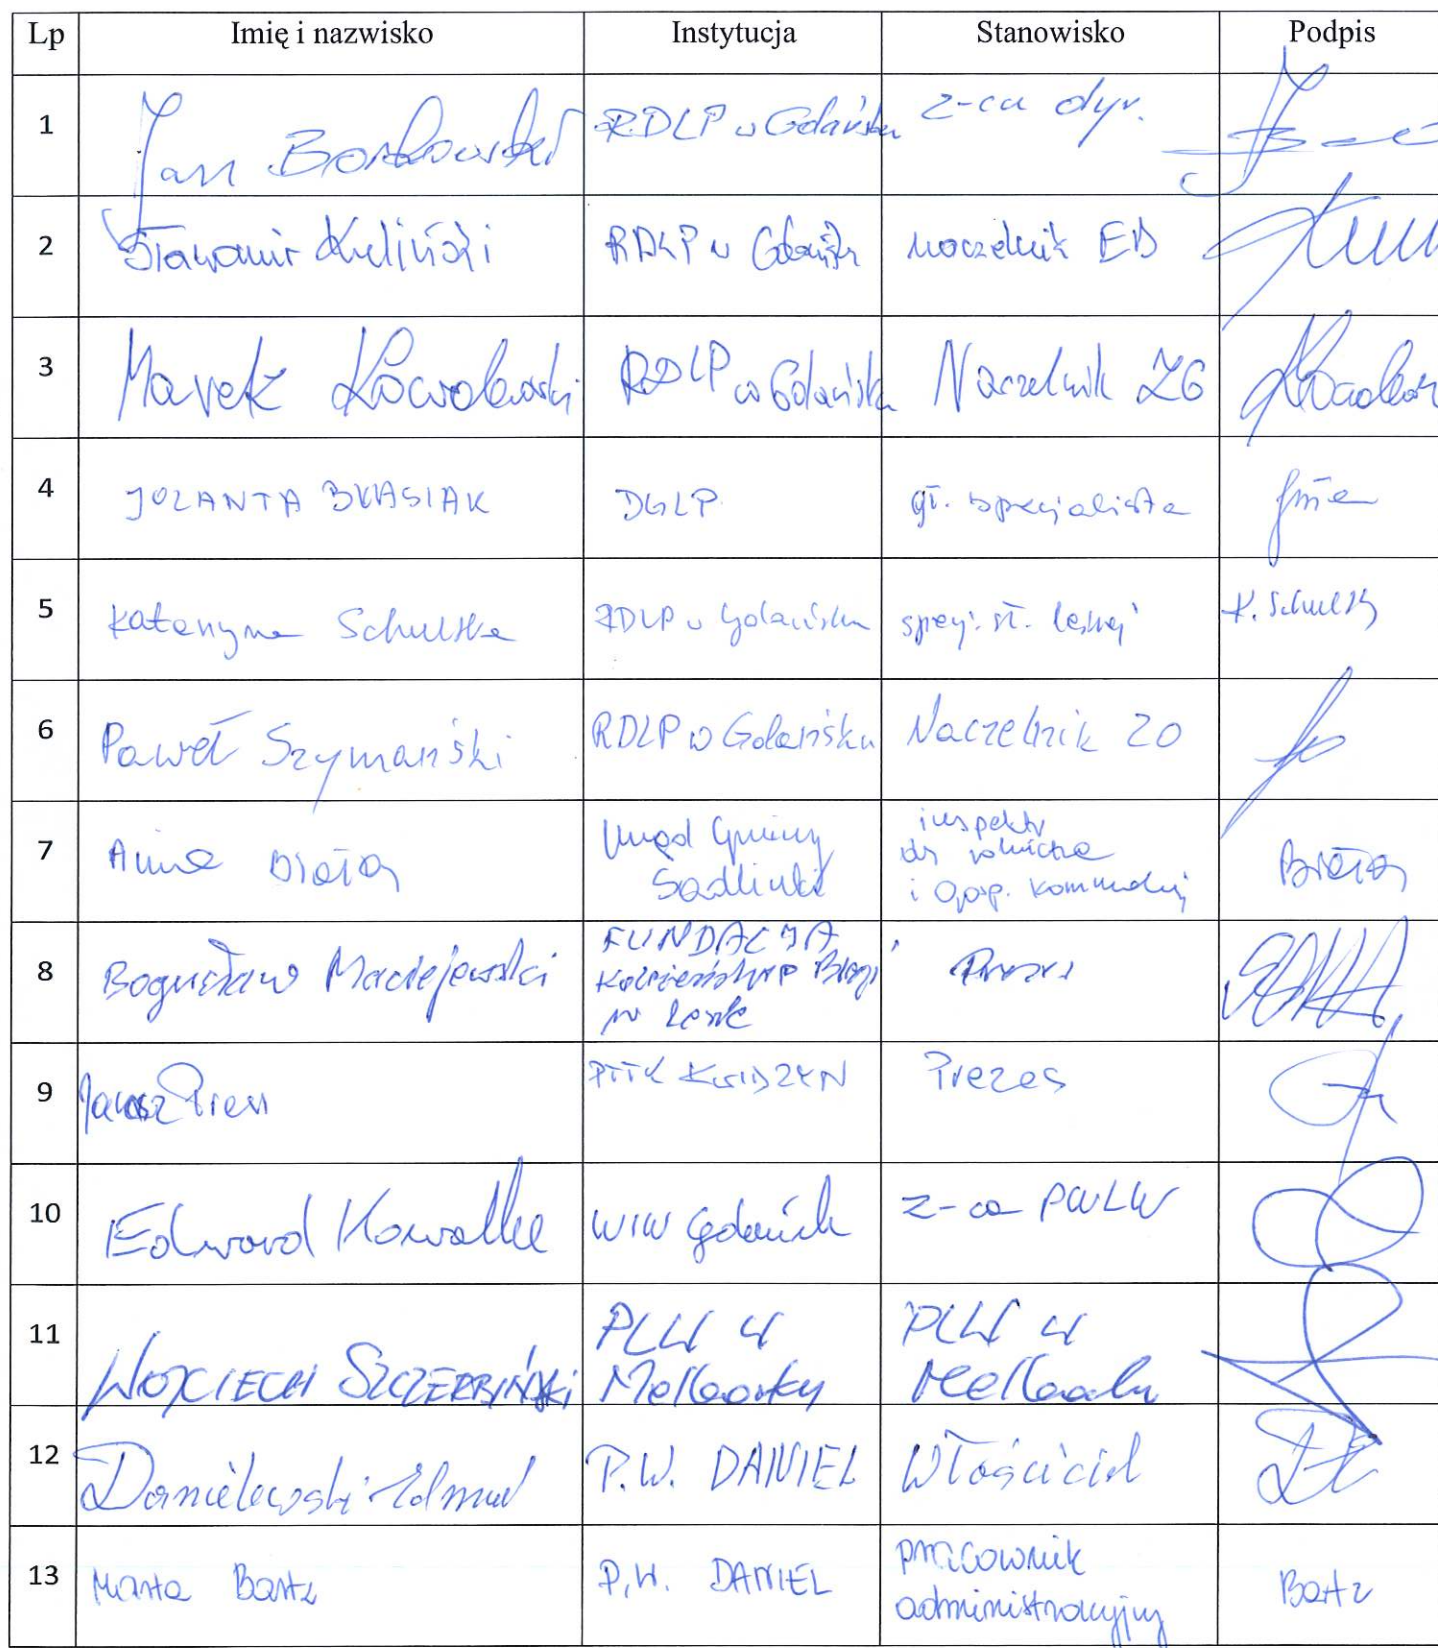 Lp Imię i nazwisko Instytucja Stanowisko Podpis
1 Jan Borkowski RDLP w Gdańsku z-ca dyr.
2 Sławomir Kuliński RDLP w Gdańsku naczelnik ED
3 Marek Kowalewski RDLP w Gdańsku Naczelnik ZG
4 JOLANTA BŁASIAK DGLP gł. specjalista
5 Katarzyna Schulska RDLP w Gdańsku specj. sł. leśnej K. Schulska
6 Paweł Szymański RDLP w Gdańsku Naczelnik ZO
7 Anna Urząd Gminy inspektor
Sadlinki ds rolnictwa
i Gosp. komunalnej
8 Bogusław Maciejewski FUNDACJA Prezes
w Lesie
9 Janusz PTTK KWIDZYN Prezes
10 Edward Kowalke WIW Gdańsk z-ca PWLW
11 WOJCIECH SZCZERBIŃSKI PLW w PLW w
Malborku Malborku
12 Danielewski Edmund P.W. DANIEL Właściciel
13 Marta Bartz P.W. DANIEL pracownik Bartz
administracyjny